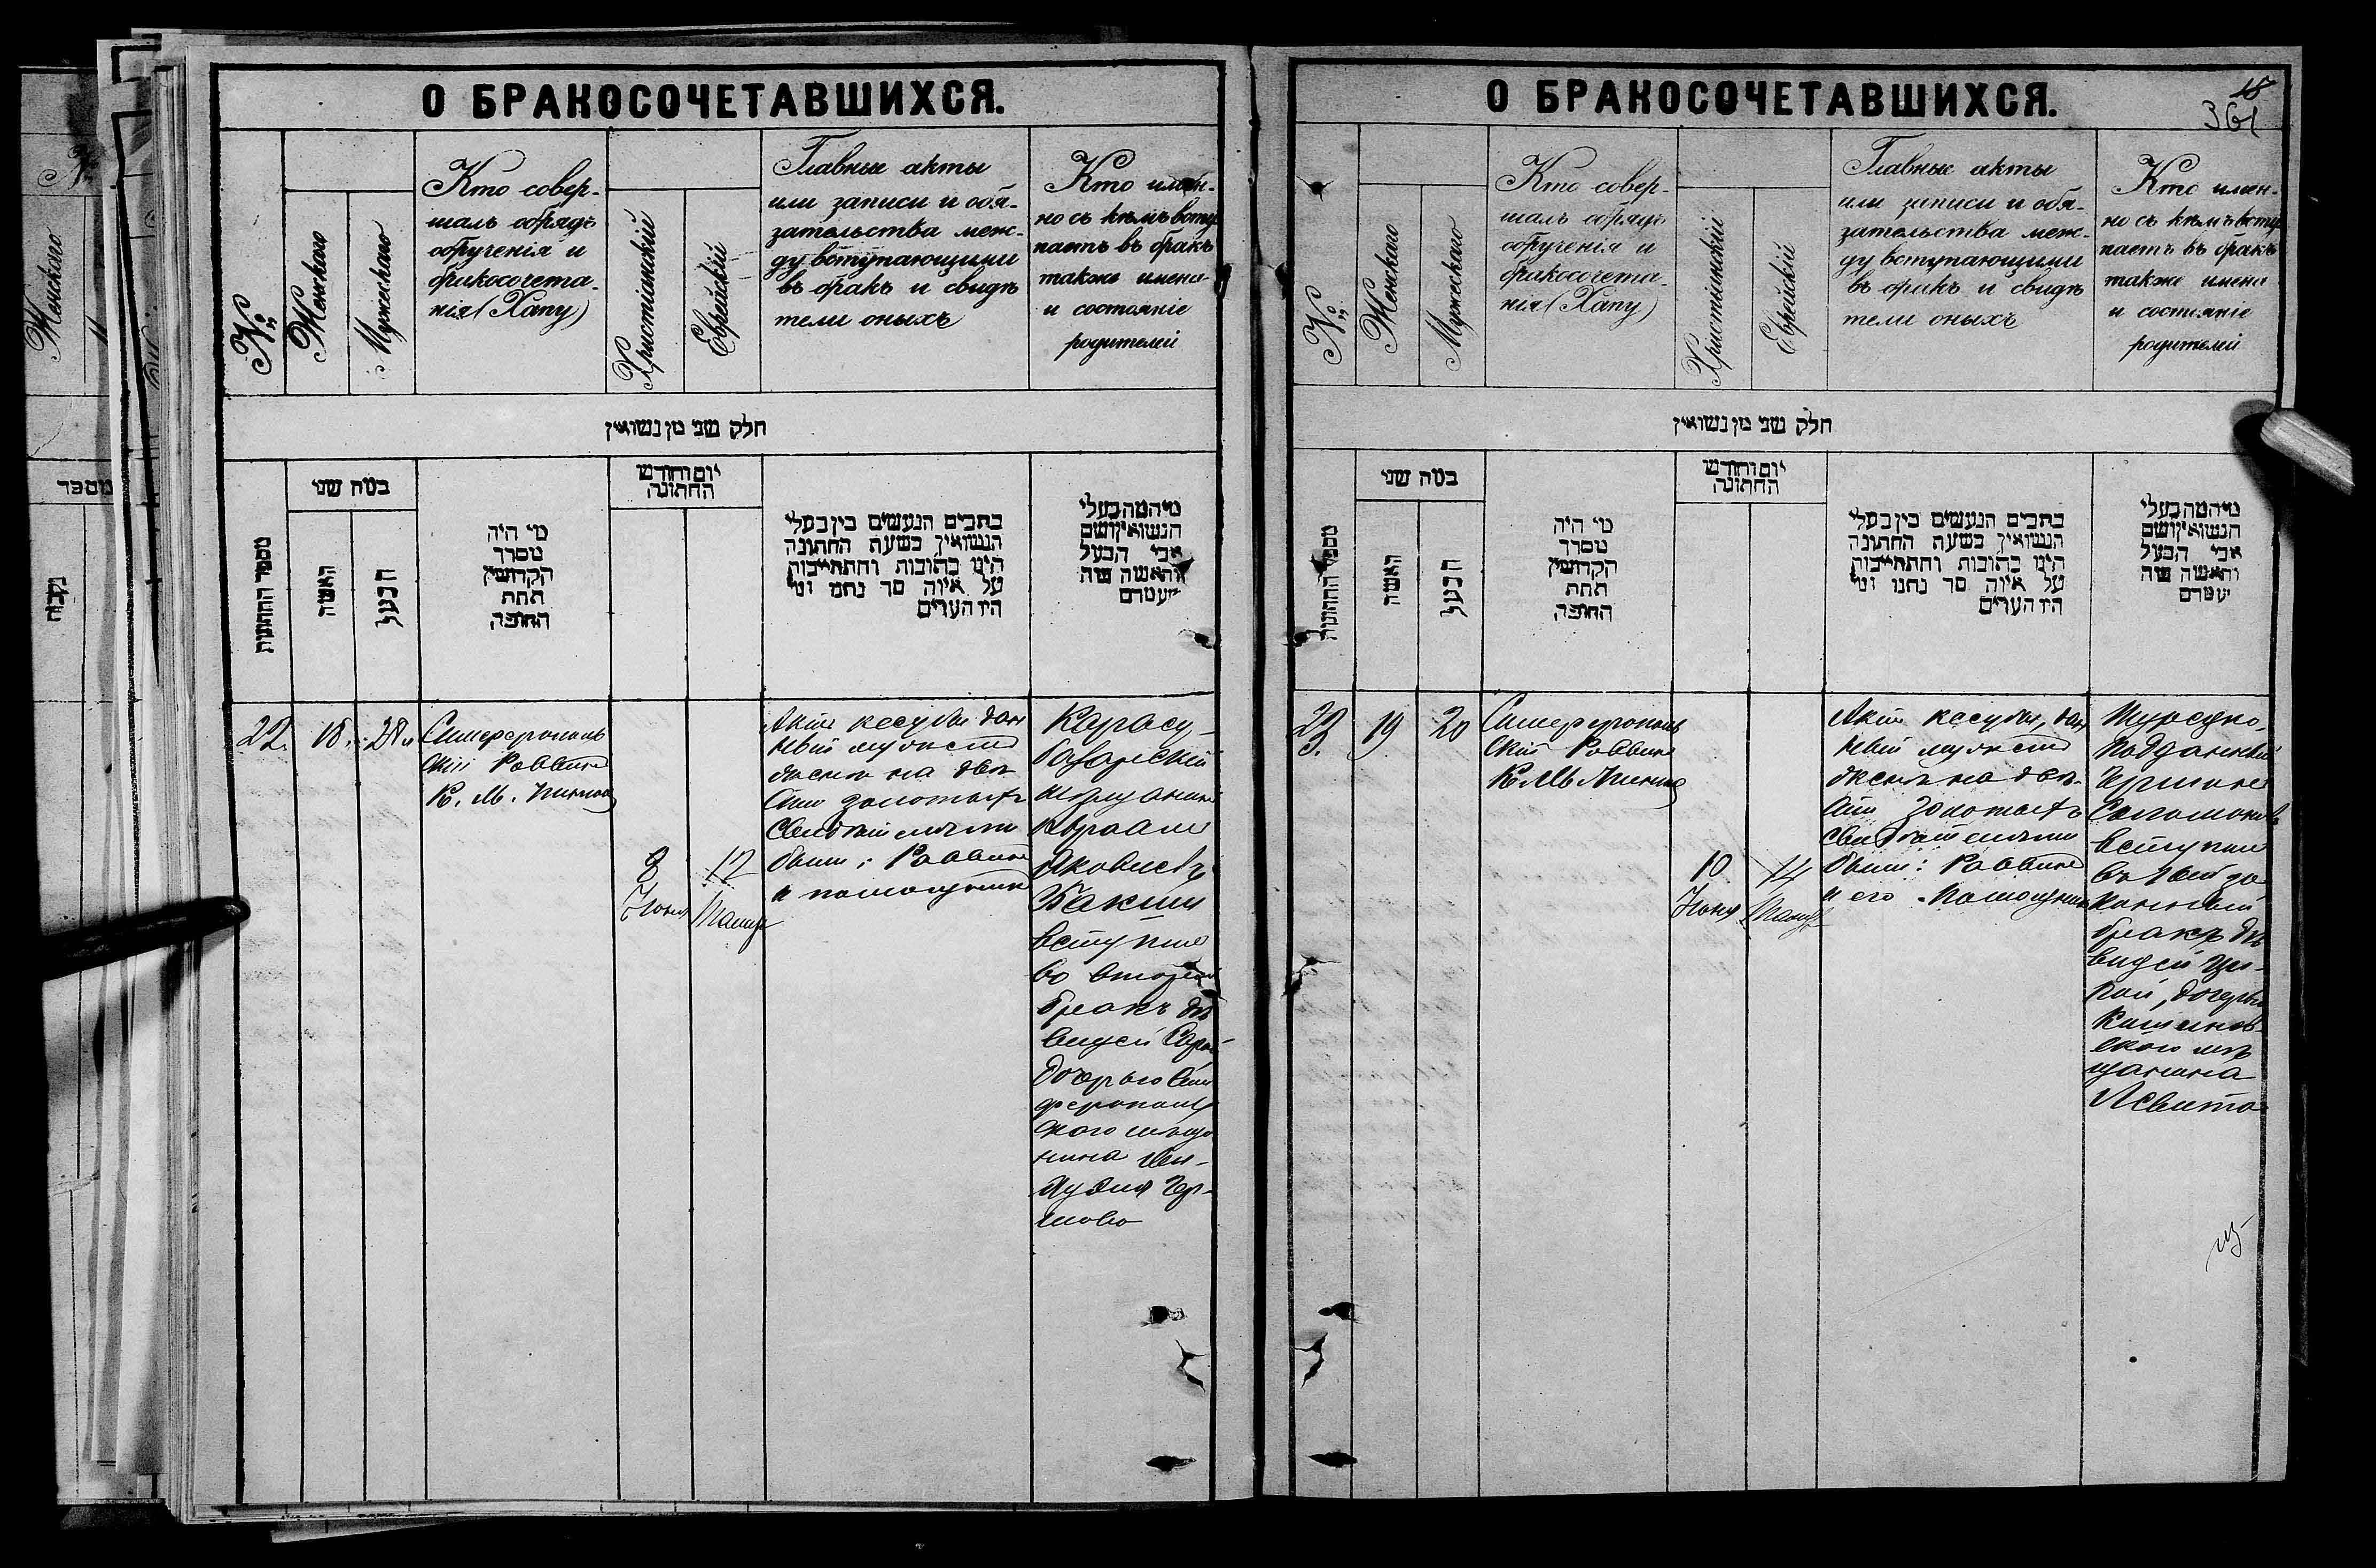 О БРАКОСОЧЕТАВШИХСЯ.
№
Женскаго
Мужескаго
Кто совер-
шалъ обрядъ
обрученія и
бракосочета-
нія (Хапу)
Христіанскій
Еврейскій
Главные акты
или записи и обя-
зательства меж-
ду вступающими
въ бракъ и свидѣ
тели оныхъ
Кто имен-
но съ кѣмъ всту
паетъ въ бракъ
также имена
и состояніе
родителей
חלק שני מן נשואין
מספר החתונות
במה שני
האשה
הבעל
מי היה
מסדר
הקדושין
תחת
החופה
יום וחודש
החתונה
כתבים הנעשים בין בעלי
הנשואין בשעת החתונה
היינו כתובות והתחייבות
על איזה סך נתנו ומי
היו העדים
מי המה בעלי
הנשואין ושם
אבי הבעל
והאשה ומה
מעמדם
22.
18.
28
Симферополь
скій Раввинъ
К. М.
8
Іюня
12
Тамуз
Актъ кесубы дан
ный мужемъ
женѣ на двѣ
сти золотыхъ
Свидѣтелями
были: Раввинъ
и помощникъ
Карасу-
базарскій
мѣщанинъ
Авраамъ
Яковлевъ
Бакши
вступилъ
во второй
бракъ дѣ
вицей Сарой
дочерью Сим
феропольс
каго мѣща
нина
О БРАКОСОЧЕТАВШИХСЯ.
18
361
№
Женскаго
Мужескаго
Кто совер-
шалъ обрядъ
обрученія и
бракосочета-
нія (Хапу)
Христіанскій
Еврейскій
Главные акты
или записи и обя-
зательства меж-
ду вступающими
въ бракъ и свидѣ
тели оныхъ
Кто имен-
но съ кѣмъ всту
паетъ въ бракъ
также имена
и состояніе
родителей
חלק שני מן נשואין
מספר החתונות
במה שני
האשה
הבעל
מי היה
מסדר
הקדושין
תחת
החופה
יום וחודש
החתונה
כתבים הנעשים בין בעלי
הנשואין בשעת החתונה
היינו כתובות והתחייבות
על איזה סך נתנו ומי
היו העדים
מי המה בעלי
הנשואין ושם
אבי הבעל
והאשה ומה
מעמדם
23.
19
20
Симферополь
скій Раввинъ
К. М.
10
Іюня
14
Тамуз
Актъ кесубы, дан
ный мужемъ
женѣ на двѣ-
сти золотыхъ
Свидѣтелями
были: Раввинъ
и его помощникъ
Турецко-
подданный
Соломоновъ
вступилъ
въ 1вый за
конный
бракъ дѣ
вицей Ци-
пой, дочерью
Кишинев-
скаго мѣ
щанина
Левита